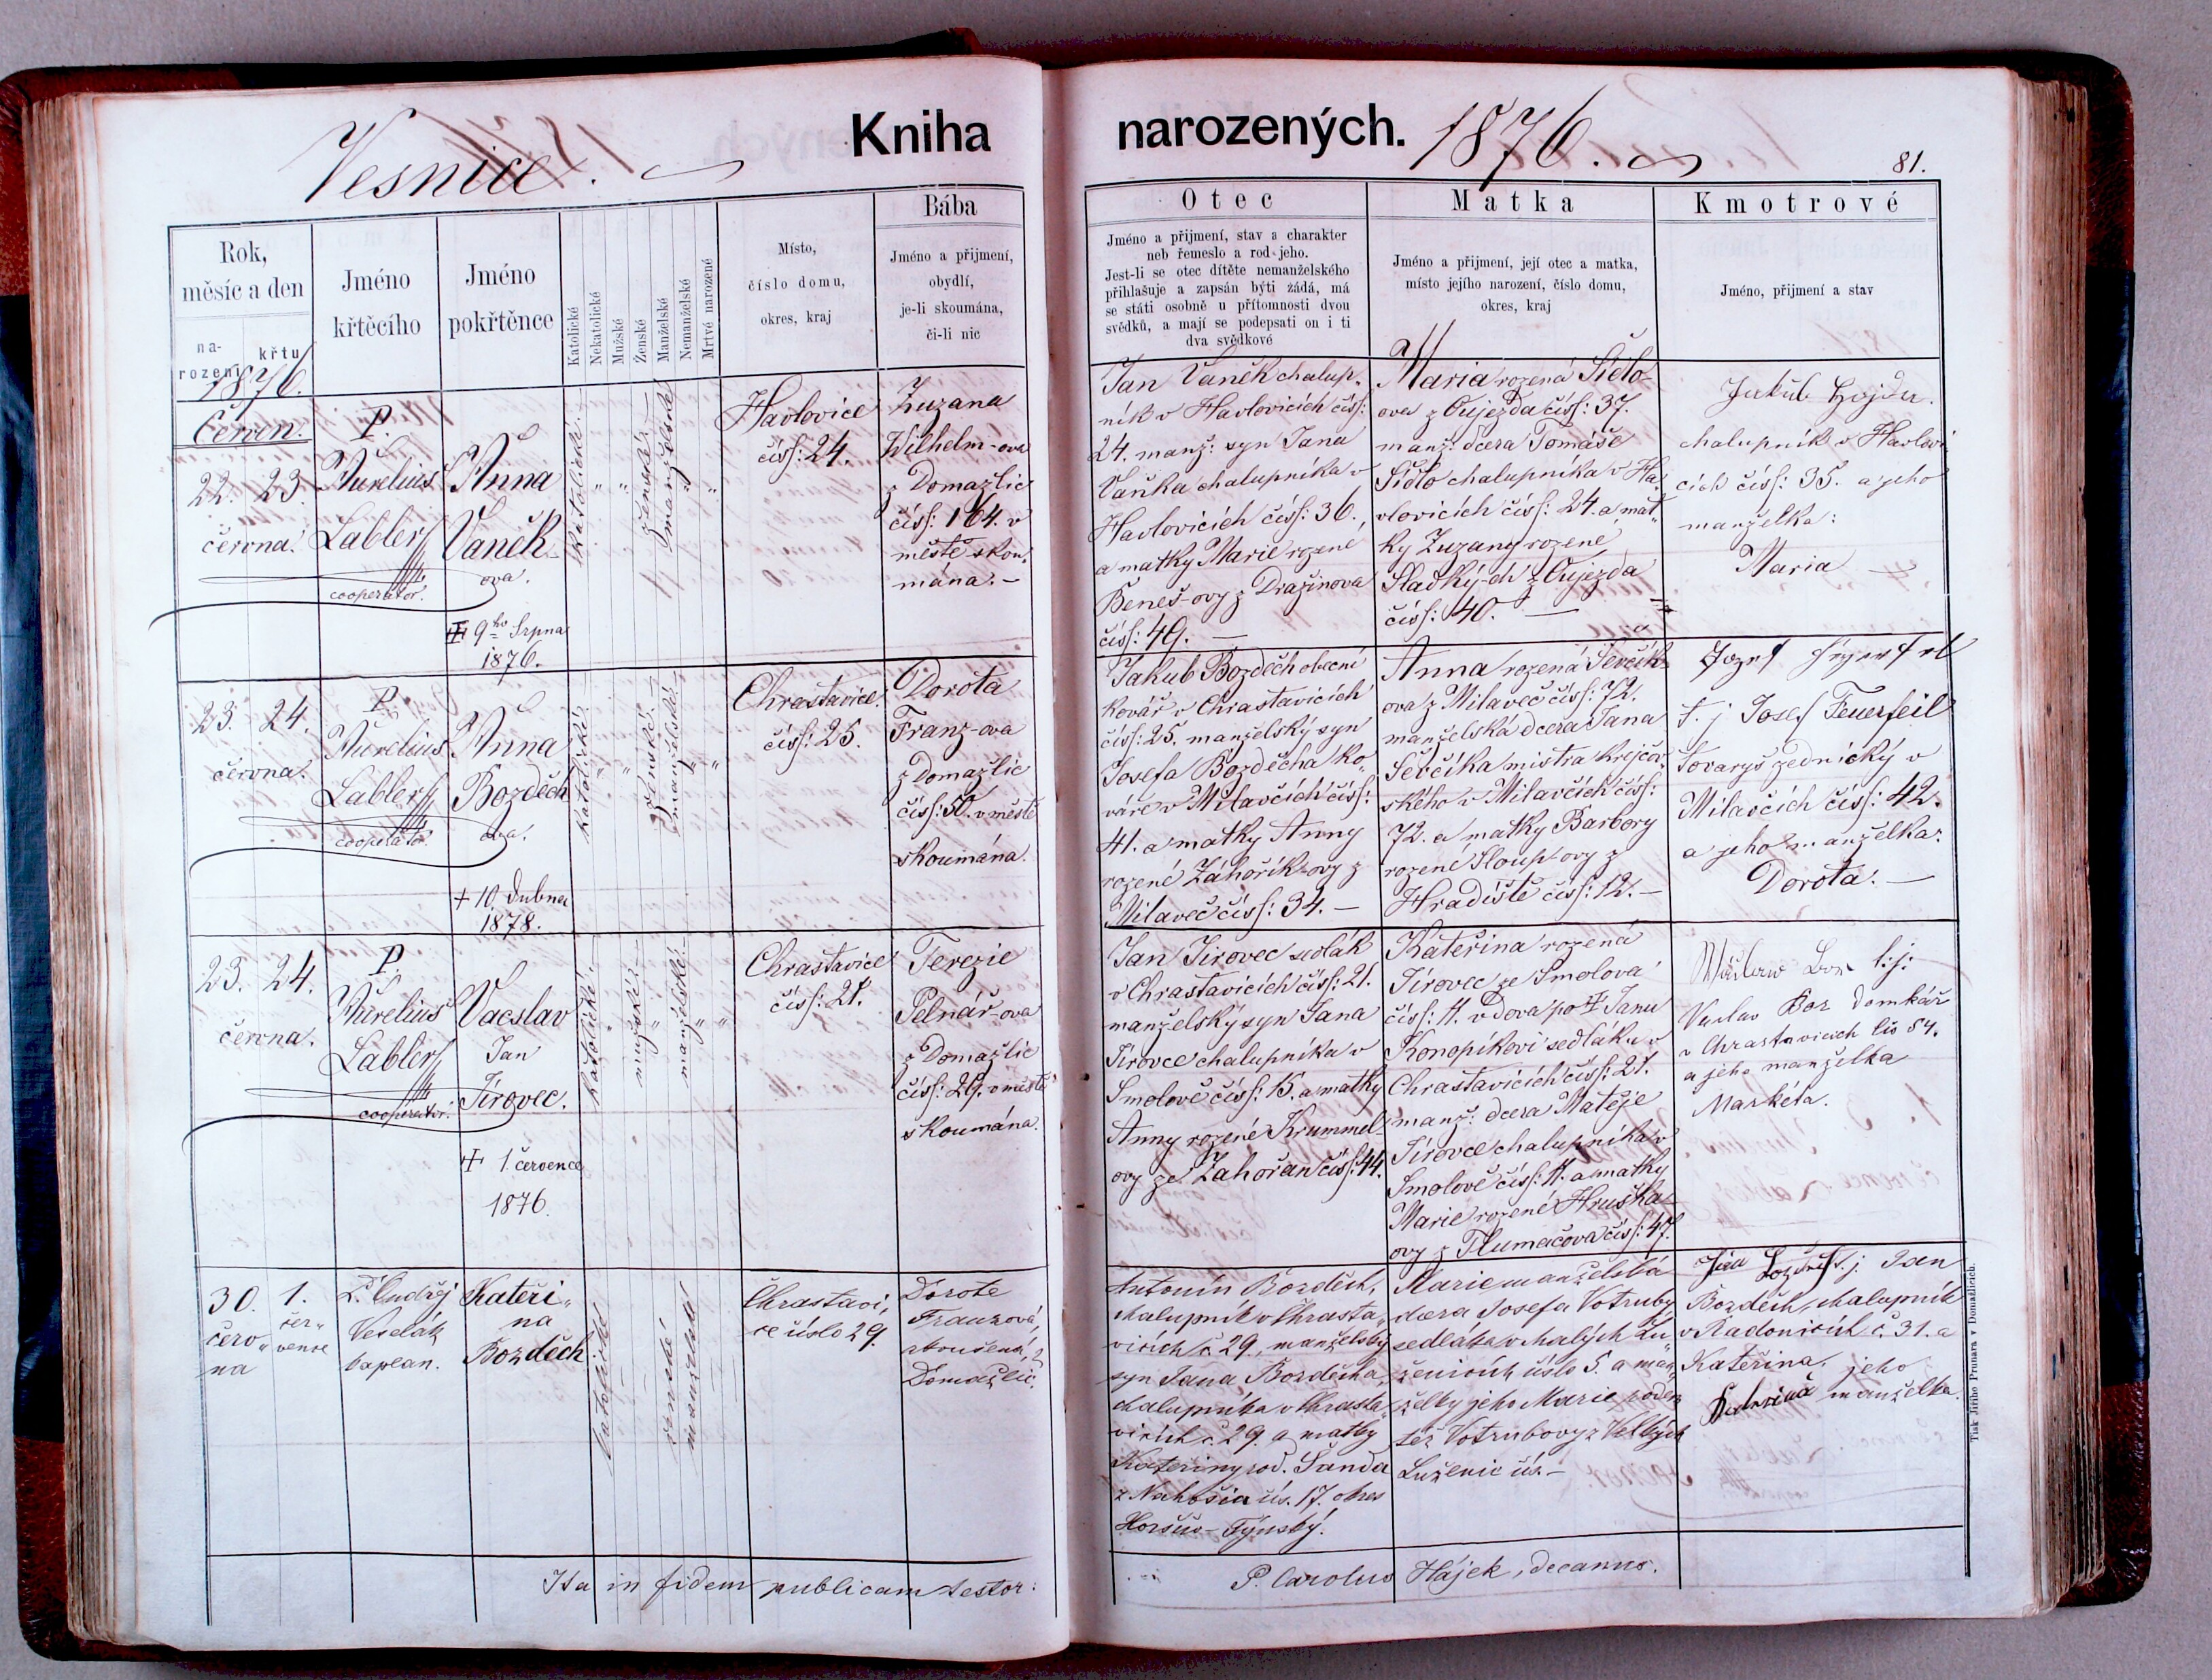 Vesnice.
Kniha
Rok,
měsíc a den
na-
rození
křtu
Jméno
křtěcího
Jméno
pokřtěnce
Katolické
Nekatolické
Mužské
Ženské
Manželské
Nemanželské
Mrtvé narozené
Místo,
číslo domu,
okres, kraj
Bába
Jméno a přijmení,
obydlí,
je-li skoumána,
či-li nic
1876.
Červen.
22. 23.
června.
P.
Aurelius
Labler
cooperator.
Anna
Vaněk-
ova.
9ho Srpna
1876.
katolické
ženské
manželské
Havlovice
čísl: 24.
Zuzana
Wilhelm-ova
z Domažlic
čísl: 164. v
městě skou-
mána. —
23. 24.
června.
P.
Aurelius
Labler
cooperator.
Anna
Bozděch
ova.
+ 10 dubna
1878.
katolické
ženské
manželské
Chrastavice
čísl: 25.
Dorota
Franz-ova
z Domažlic
čísl: 50. v městě
skoumána.
23. 24.
června.
P.
Aurelius
Labler
cooperator.
Vacslav
Jan
Jírovec.
1. července
1876.
katolické
mužské
manželské
Chrastavice
čísl: 21.
Terezie
Pelnář-ova
z Domažlic
čísl: 29. v městě
skoumána.
30. 1.
červ„
na
čer„
vence
P. Ondřej
Veselák
kaplan.
Kateři„
na
Bozděch
katolické
ženské
manželské
Chrastavi„
ce číslo 29.
Dorota
Franzová,
zkoušená, z
Domažlic.
Ita in fidem publicam testor:
narozených.
1876.
81.
Otec
Jméno a přijmení, stav a charakter
neb řemeslo a rod jeho.
Jest-li se otec dítěte nemanželského
přihlašuje a zapsán býti žádá, má
se státi osobně u přítomnosti dvou
svědků, a mají se podepsati on i ti
dva svědkové
Matka
Jméno a přijmení, její otec a matka,
místo jejího narození, číslo domu,
okres, kraj
Kmotrové
Jméno, přijmení a stav
Jan Vaněk chalup-
ník v Havlovicích čísl:
24. manž: syn Jana
Vaňka chalupníka v
Havlovicích čísl: 36.,
a matky Marie rozené
Beneš-ovy z Dražinova
čísl: 49. —
Maria rozená Šídlo-
ova z Oujezda čísl: 37.
manž: dcera Tomáše
Šídlo chalupníka v Ha-
vlovicích čísl: 24. a mat„
ky Zuzany rozené
Sladký-ch z Oujezda
čísl: 40. —
chalupník v Havlovi
cích čísl: 35. a jeho
manželka:
Maria —
Jakub Bozděch obecní
kovář v Chrastavicích
čísl: 25. manželský syn
Josefa Bozděcha ko„
váře v Milavčích čísl:
41. a matky Anny
rozené Záhořík-ovy z
Milaveč čísl: 34. —
Anna rozená Ševčík
ova z Milaveč čísl: 72.
manželská dcera Jana
Ševčíka mistra krejčov-
ského v Milavčích čísl:
72. a matky Barbory
rozené Sloup-ovy z
Hradiště čísl: 12. —
t. j Josef Feuerfeil
tovaryš zednický v
Milavčích čísl: 42.
a jeho manželka:
Dorota. —
Jan Jírovec sedlák
v Chrastavicích čísl: 21.
manželský syn Jana
Jírovce chalupníka v
Smolově čísl: 15. a matky
Anny rozené Krummel-
ovy ze Zahořan čísl: 44.
Kateřina rozená
Jírovec ze Smolova
čísl: 11. vdova po Janu
Konopíkovi sedláku v
Chrastavicích čísl: 21.
manž: dcera Matěje
Jírovce chalupníka v
Smolově čísl: 11. a matky
Marie rozené Hruška-
ovy z Tlumačova čísl: 47.
t:j:
Vaclav Bor domkář
v Chrastavicich čis 54.
a jeho manželka
Markéta.
Antonín Bozděch,
chalupník v Chrasta„
vicích č. 29., manželský
syn Jana Bozděcha,
chalupníka v Chrasta„
vicích č. 29. a matky
Kateřiny roď. Šanda
z Nahošic čís. 17. okres
Horšův-Týnský.
Marie manželská
dcera Josefa Votruby
sedláka v Malých Lu„
ženicích číslo 5. a man„
želky jeho Marie rodem
též Votrubovy z Velkých
Luženic čís. —
t. j. Jan
Bozděch, chalupník
v Radonicích č. 31. a
Kateřina, jeho
manželka.
P. Carolus Hájek, decanus.
Tisk Jiřího Prunara v Domažlicích.